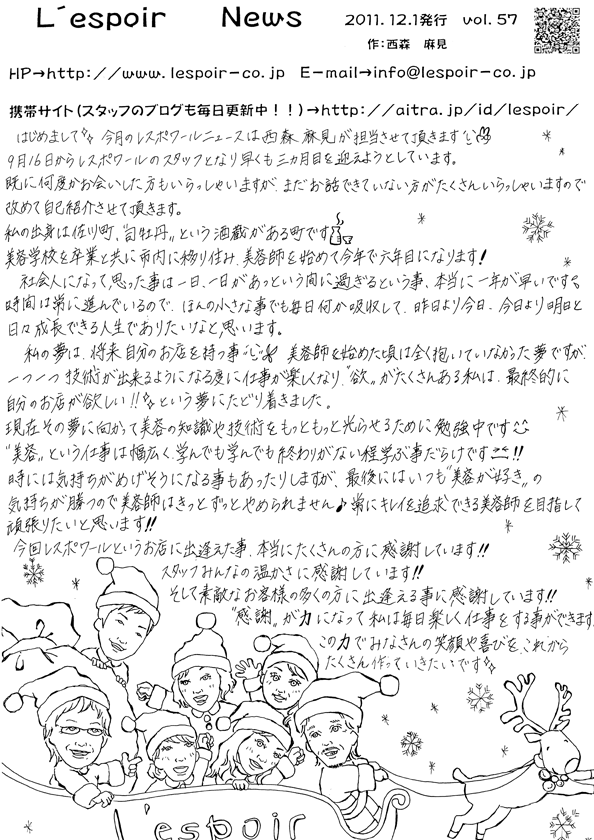 L'espoir News
2011.12.1発行 vol.57
作:西森 麻見
HP→http://www.lespoir-co.jp E-mail→info@lespoir-co.jp
携帯サイト(スタッフのブログも毎日更新中!!)→http://aitra.jp/id/lespoir/
はじめまして 今月のレスポワールニュースは西森麻見が担当させて頂きます
9月16日からレスポワールのスタッフとなり早くも三カ月目を迎えようとしています。
既に何度かお会いした方もいらっしゃいますが、まだお話できていない方がたくさんいらっしゃいますので
改めて自己紹介させて頂きます。
私の出身は佐川町、"司牡丹"という酒蔵がある町です
美容学校を卒業と共に市内に移り住み、美容師を始めて今年で六年目になります!
社会人になって思った事は一日、一日があっという間に過ぎるという事、本当に一年が早いです。
時間は常に進んでいるので、ほんの小さな事でも毎日何か吸収して、昨日より今日、今日より明日と
日々成長できる人生でありたいなと思います。
私の夢は、将来自分のお店を持つ事 美容師を始めた頃は全く抱いていなかった夢ですが、
一つ一つ技術が出来るようになる度に仕事が楽しくなり、"欲"がたくさんある私は、最終的に
自分のお店が欲しい!!という夢にたどり着きました。
現在その夢に向かって美容の知識や技術をもっともっと光らせるために勉強中です
"美容"という仕事は幅広く、学んでも学んでも終わりがない程学ぶ事だらけです!!
時には気持ちがめげそうになる事もあったりしますが、最後にはいつも"美容が好き"の
気持ちが勝つので美容師はきっとずっとやめられません♪常にキレイを追求できる美容師を目指して
頑張りたいと思います!!
今回レスポワールというお店に出逢えた事、本当にたくさんの方に感謝しています!!
スタッフみんなの温かさに感謝しています!!
そして素敵なお客様の多くの方に出逢える事に感謝しています!!
"感謝"が力になって私は毎日楽しく仕事をする事ができます。
この力でみなさんの笑顔や喜びを、これから
たくさん作っていきたいです
L'espoir